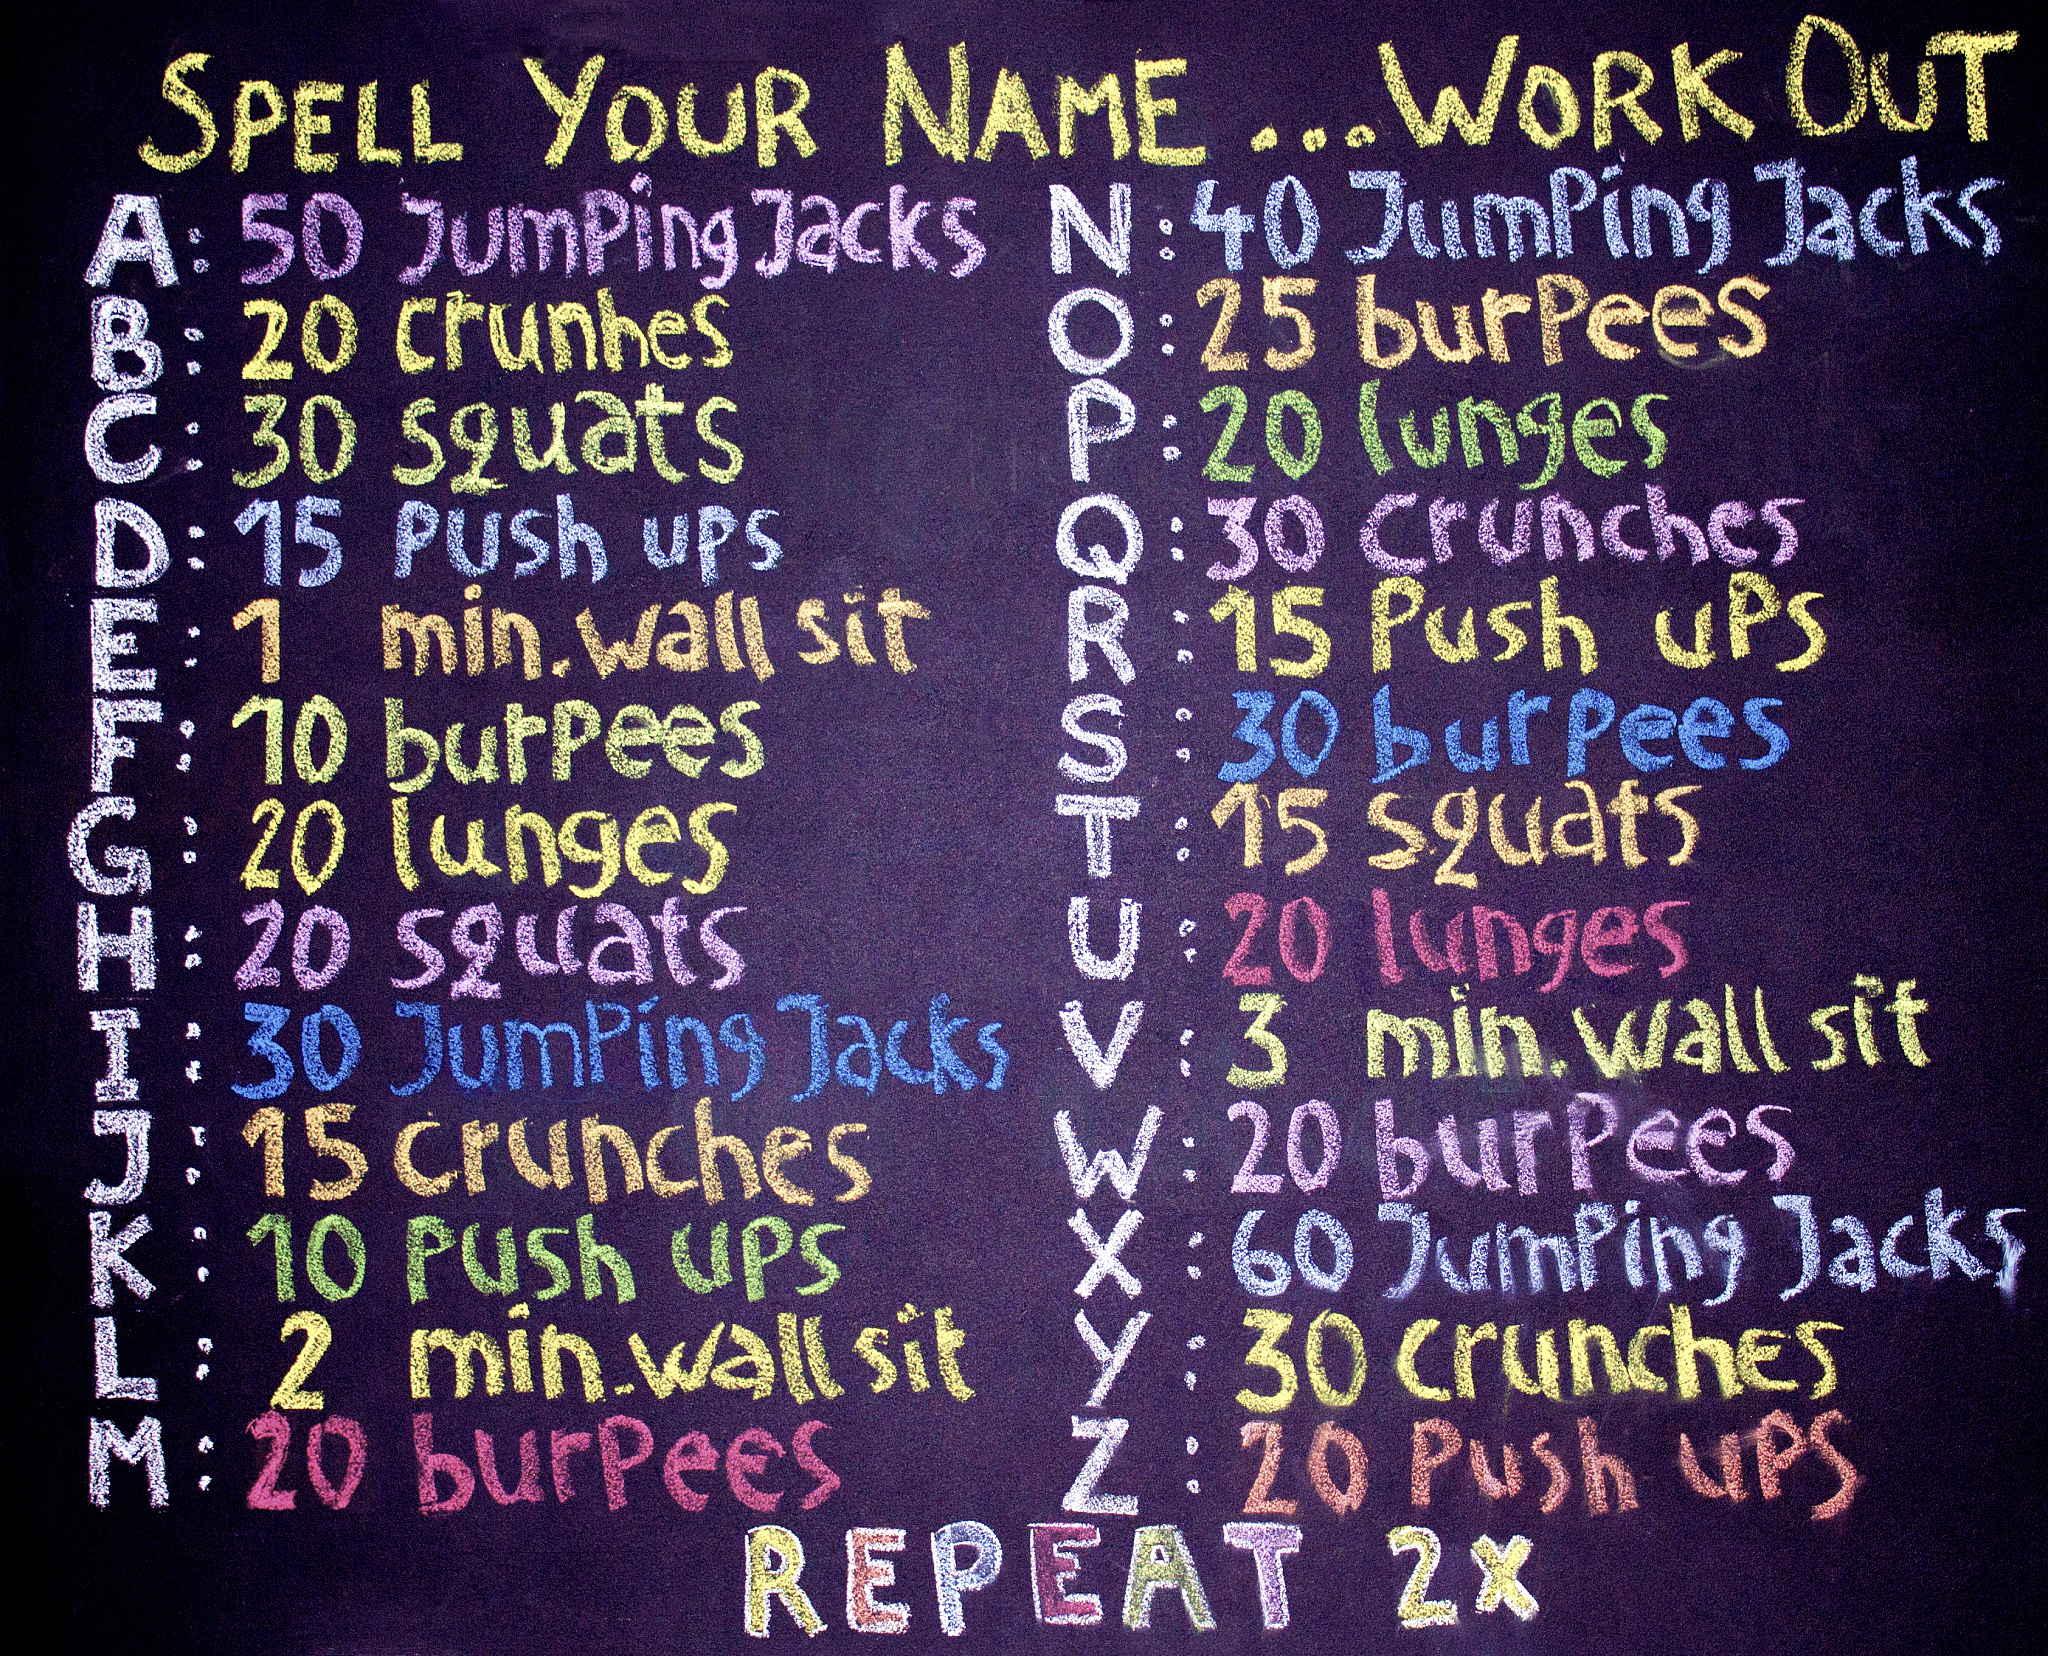 SPELL YOUR NAME ... WORK OUT
A: 50 Jumping Jacks
B: 20 crunhes
C: 30 squats
D: 15 push ups
E: 1 min. wall sit
F: 10 burpees
G: 20 lunges
H: 20 squats
I: 30 Jumping Jacks
J: 15 crunches
K: 10 push ups
L: 2 min. wall sit
M: 20 burpees
N: 40 Jumping Jacks
O: 25 burpees
P: 20 lunges
Q: 30 crunches
R: 15 Push ups
S: 30 burpees
T: 15 squats
U: 20 lunges
V: 3 min. wall sit
W: 20 burpees
X: 60 Jumping Jacks
Y: 30 crunches
Z: 20 Push ups
REPEAT 2x